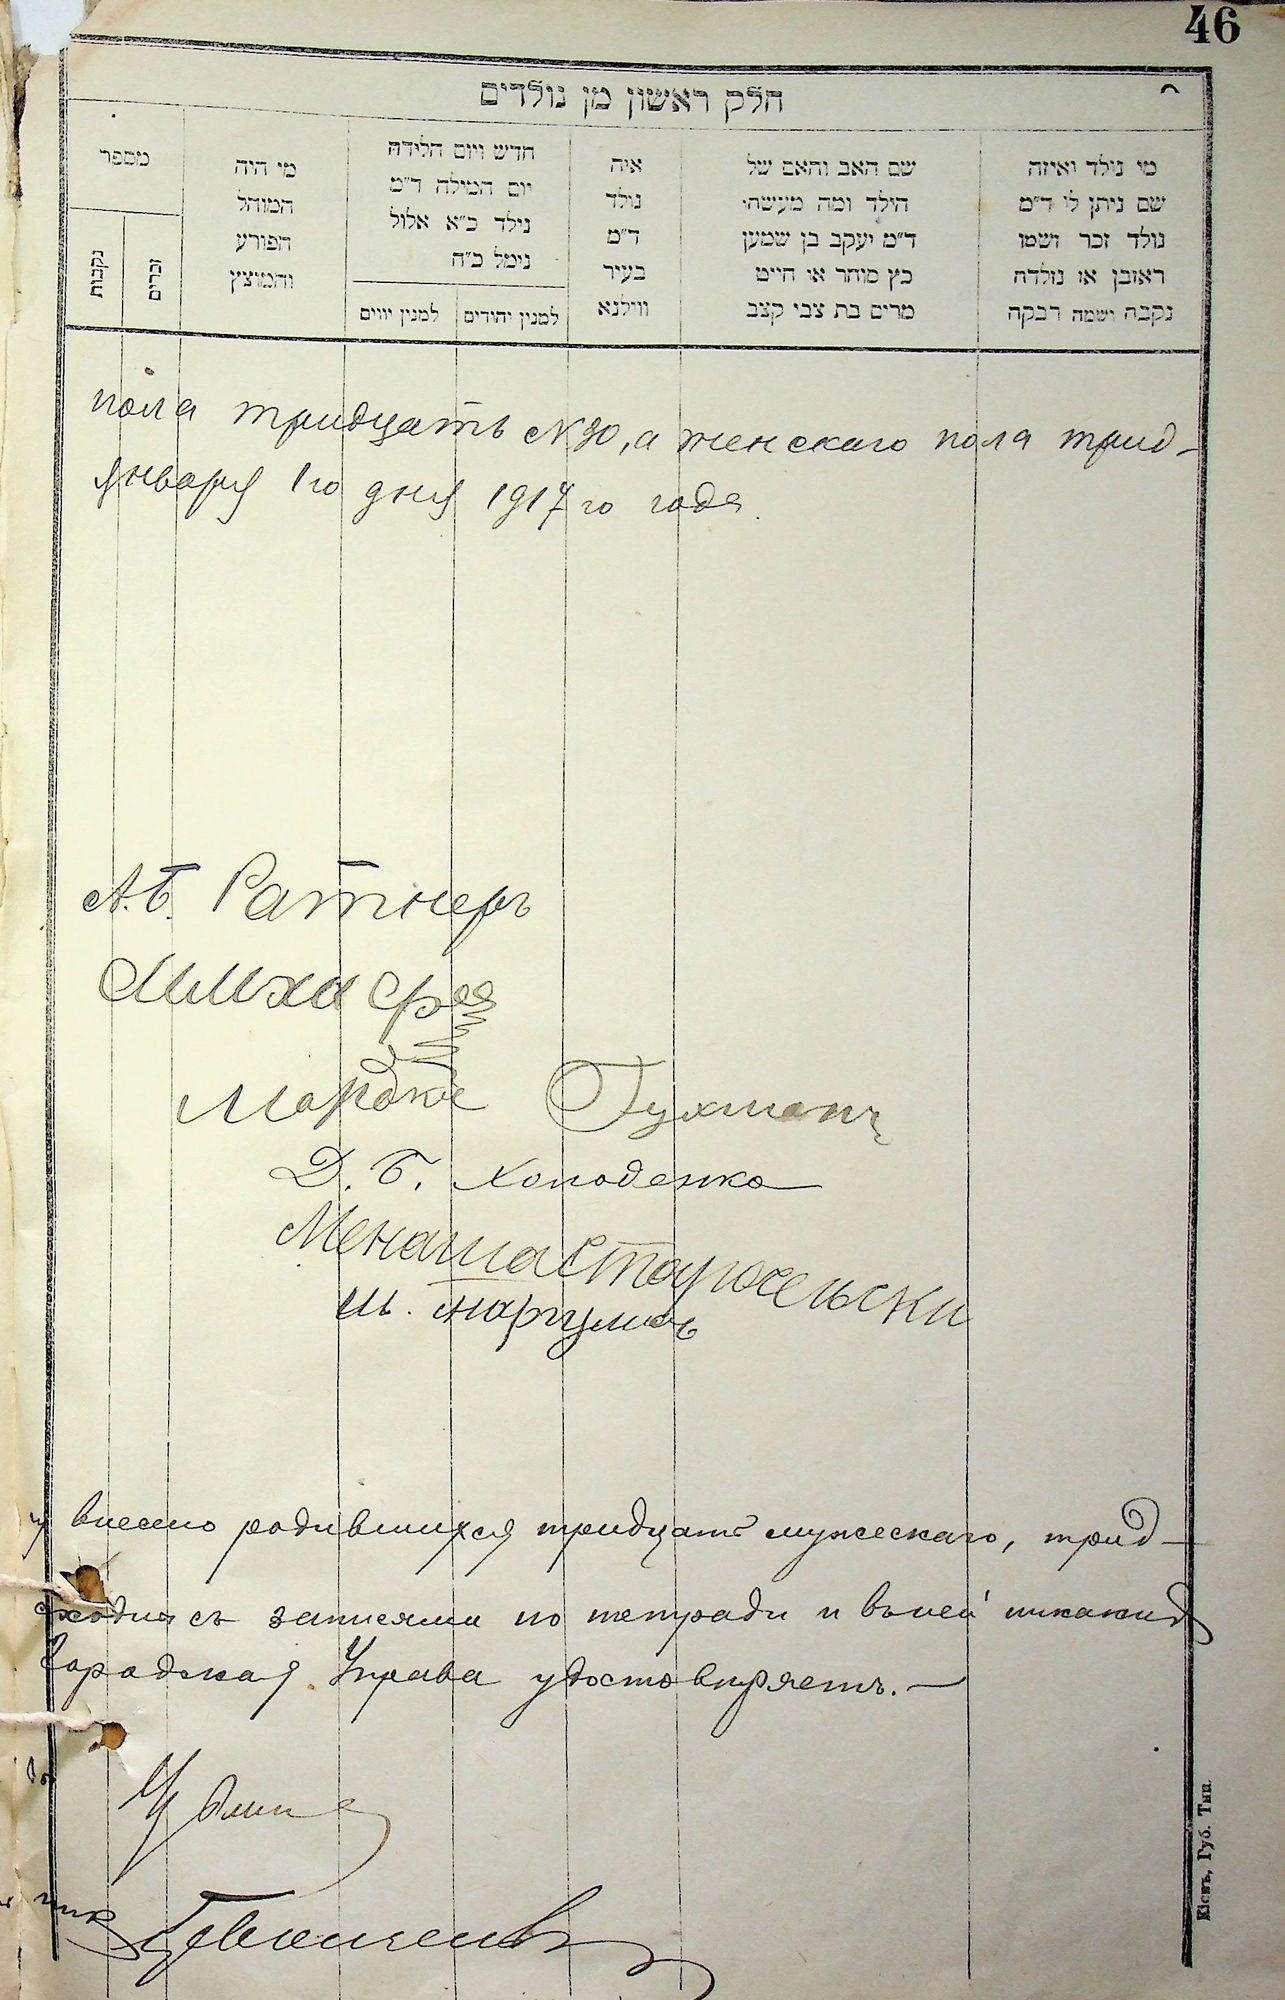 46
חלק ראשון מן נולדים
מי נולד ואיזה
שם ניתן לו ד"מ
נולד זכר ושמו
ראובן או נולדה
נקבה ושמה רבקה
שם האב והאם של
הילד ומה מעשהו
ד"מ יעקב בן שמעון
כץ סוחר או חייט
מרים בת צבי קצב
איה
נולד
ד"מ
בעיר
ווילנא
חדש ויום הלידה
יום המילה ד"מ
נילד כ"א אלול
נימל כ"ח
למנין יהודים
למנין יווים
מי היה
המוהל
הפורע
והמוצץ
מספר
זכרים
נקבות
пола тридцать №30, а женскаго пола трид-
января 1го дня 1917го года.
А.Б. Ратнеръ
Мордко Гухманъ
Д. Б. Холоденко
Менаша Старосельски
внесено родившихся тридцать мужескаго, трид-
сходны съ записями по тетради и въ ней никакихъ
Городская Управа удостовѣряетъ.
Кіевъ, Губ. Тип.